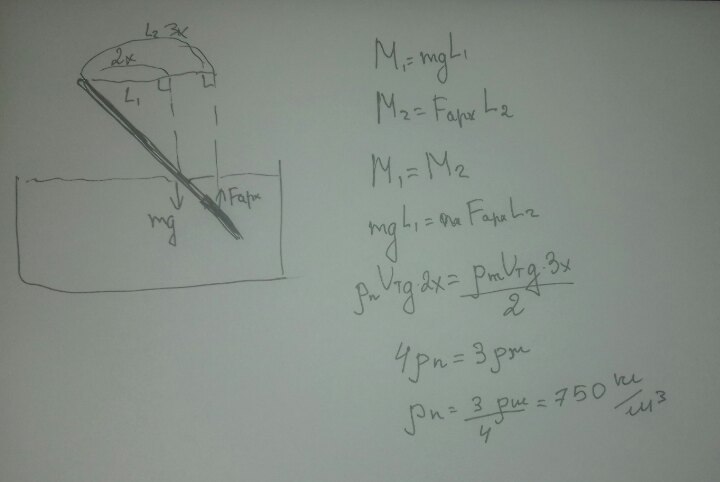 L₂ 3x
2x
L₁
mg
Fарх
M₁=mgL₁
M₂=Fарх L₂
M₁=M₂
mgL₁= Fарх L₂
ρп Vт g·2x= ρж Vт g·3x / 2
4ρп=3ρж
ρп= 3ρж / 4 =750 кг/м³